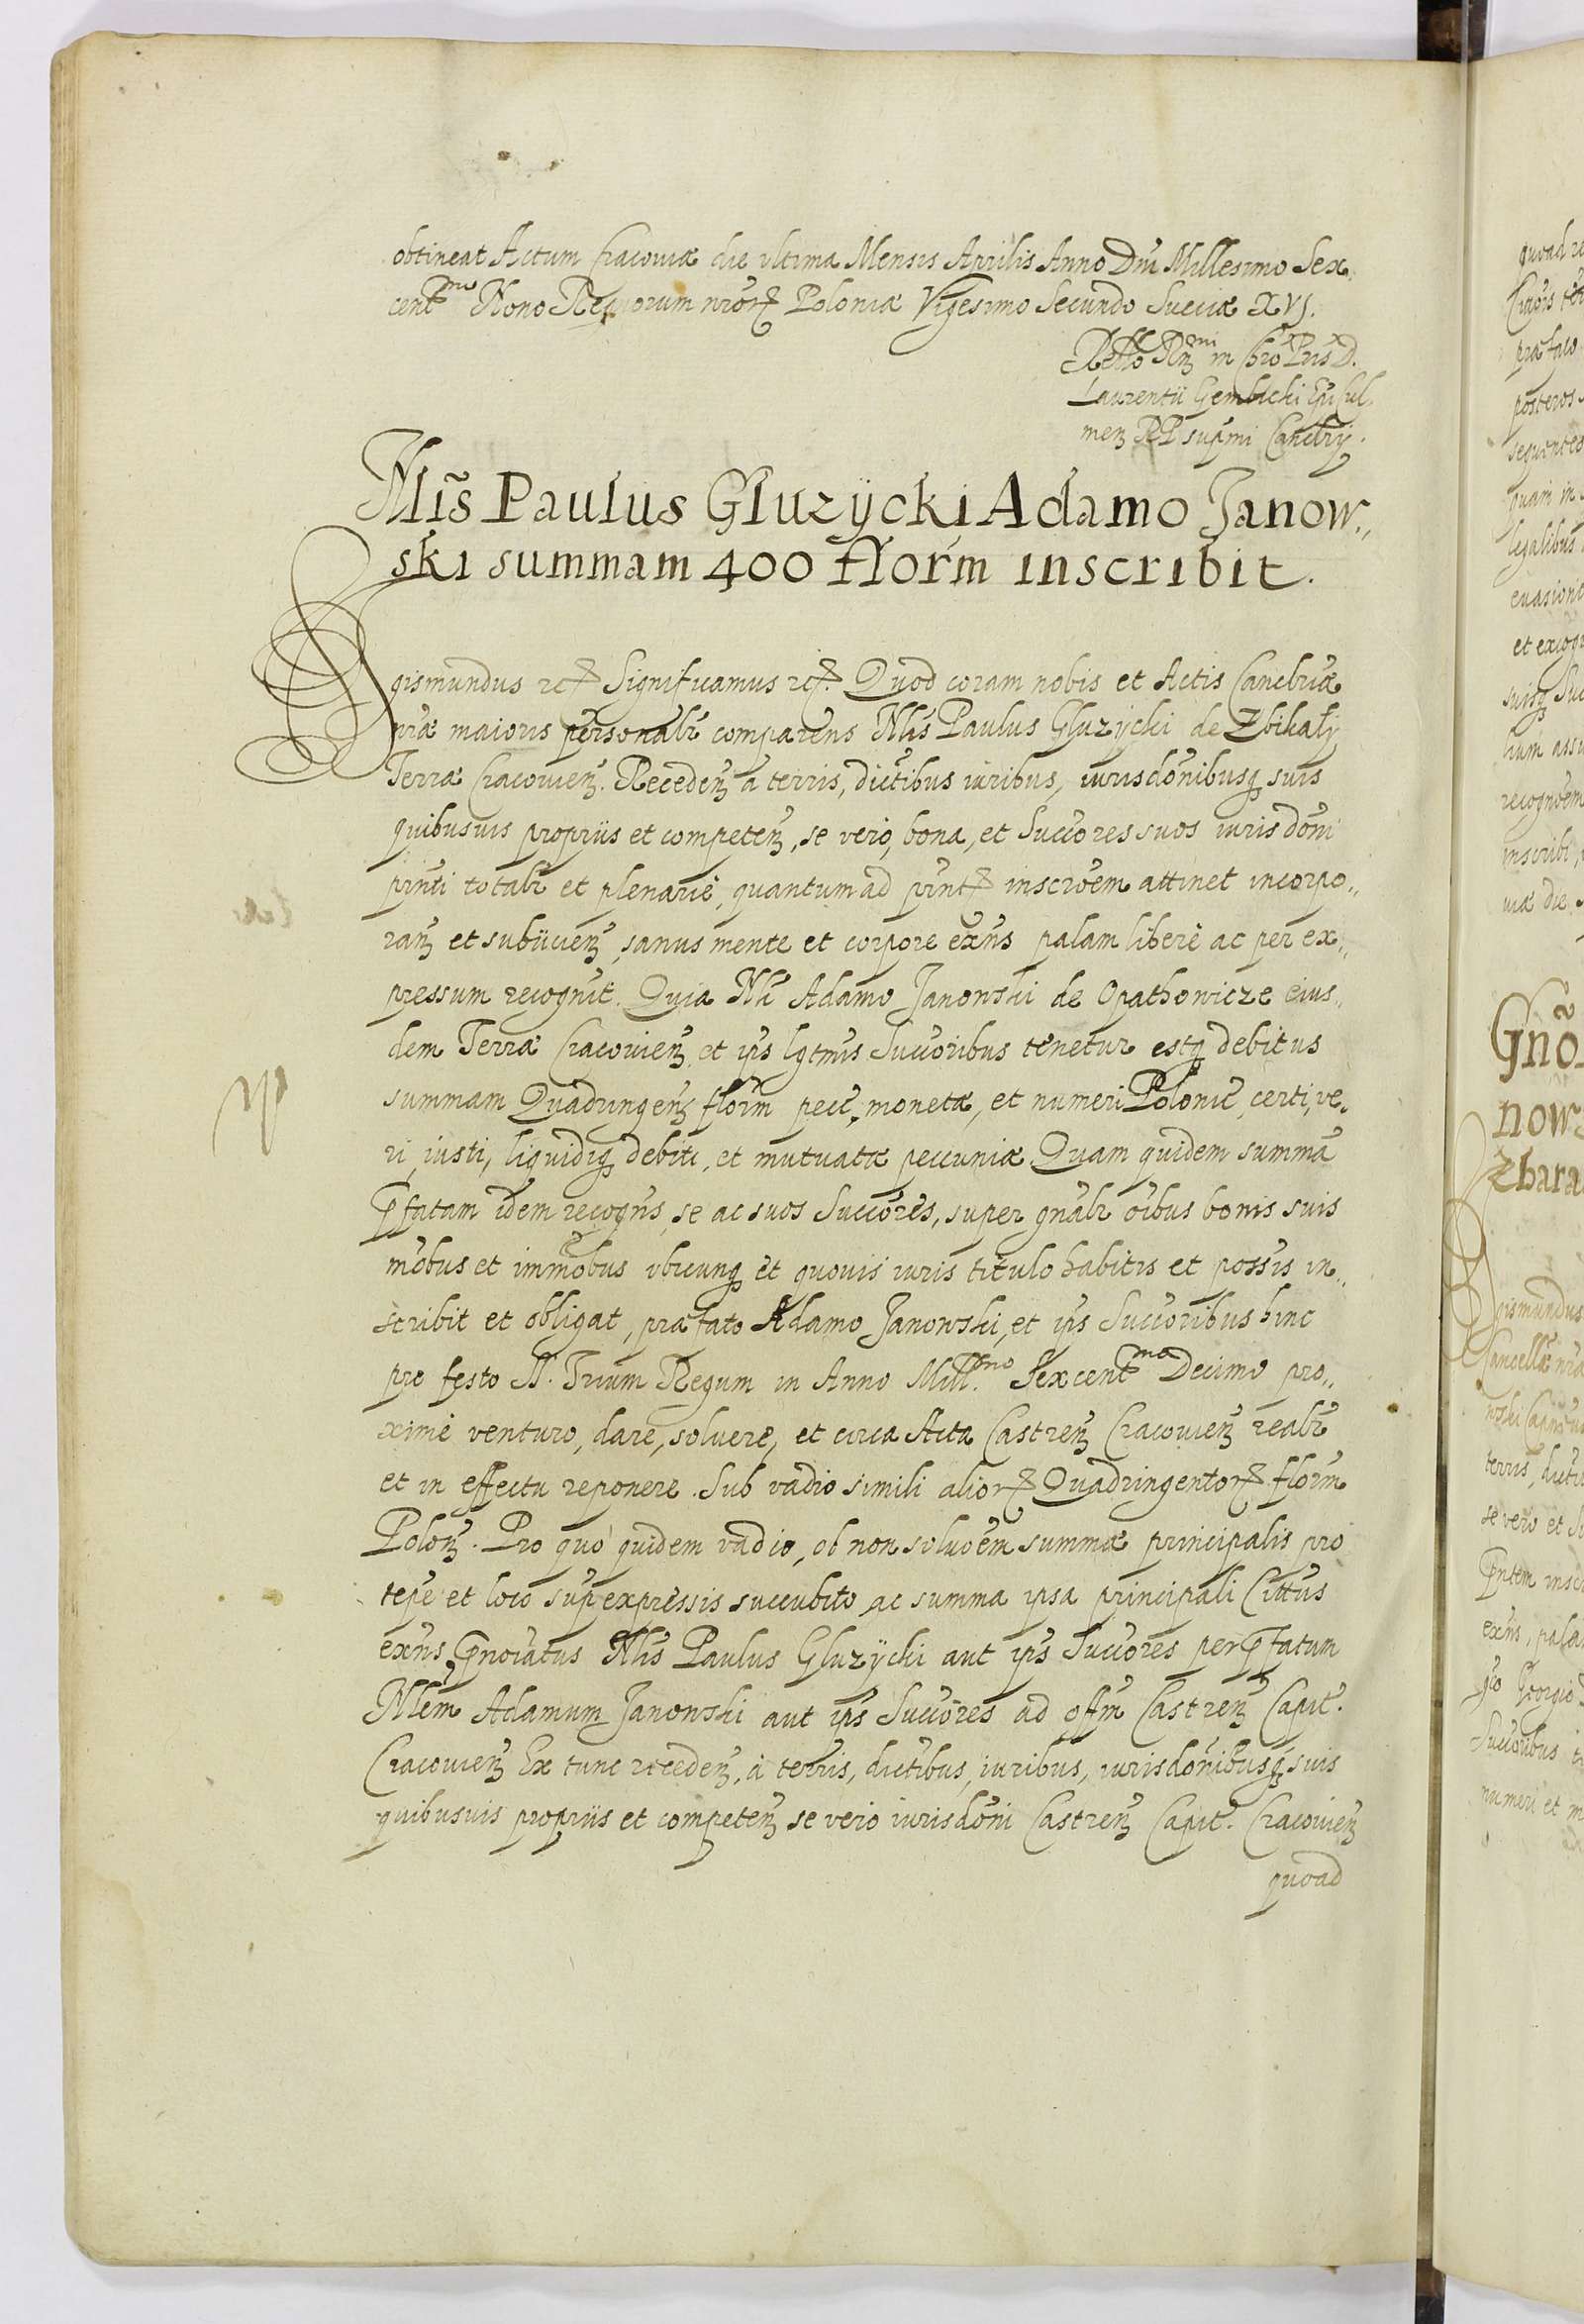 obtineat Actum Cracoviæ die ultima Mensis Aprilis Anno Dni Millesimo Sex,
centmo Nono Regnorum nror Poloniæ Vigesimo Secundo Sueciæ XVI.
Relło Rmi in Chro Pris D.
Laurentii Gembicki Epi Cul,
men RP supmi Cancbrij.
Nlis Paulus Gluzÿcki Adamo Janow,,
ski summam 400 florm inscribit.
Sigismundus etc Significamus etc. Quod coram nobis et Actis Cancbriæ
nræ maioris personalr comparens Nlis Paulus Gluzÿcki de Zbikaly
Terræ Cracovien. Receden a terris, dictibus iuribus, iurisdonibusq suis
quibusvis propriis et competen, se vero, bona, et Succores suos iurisdoni
prnti totalr et plenarie, quantum ad prnt inscroem attinet incorpo,,
ran et subiicien, sanus mente et corpore exns palam libere ac per ex,,
pressum recognit. Quia Nli Adamo Janowski de Opathowicze eius,,
dem Terræ Cracovien et ips lgtmis Succoribus tenetur estq debitus
summam Quadringen florm pecc, monetæ, et numeri Polonic, certi, ve,
ri, iusti, liquidiq debiti, et mutuatæ peccuniæ Quam quidem summa
pfatam idem recogns, se ac suos Succores, super gnalr oibus bonis suis
mobus et immobus ubicunq et quovis iuris titulo habitis et possis in,,
scribit et obligat, præfato Adamo Janowski, et ips Succoribus hinc
pro festo S. Trium Regum in Anno Mill.mo Sexcentmo Decimo pro,,
xime venturo, dare, solvere, et circa Acta Castren Cracovien realr
et in effectu reponere. Sub vadio simili alior Quadringentor florm
Polon. Pro quo quidem vadio, ob non soluoem summæ principalis pro
tepe et loco sup expressis succubito ac summa ipsa principali Cittus
exns, pnoiatus Nlis Paulus Gluzÿcki aut ips Succores per pfatum
Nlem Adamum Janowski aut ips Succores ad offm Castren Capit.
Cracovien Ex tunc receden, a terris, dictibus, iuribus, iurisdonibusq suis
quibusvis propriis et competen se vero iurisdoni Castren Capit. Cracovien
quoad